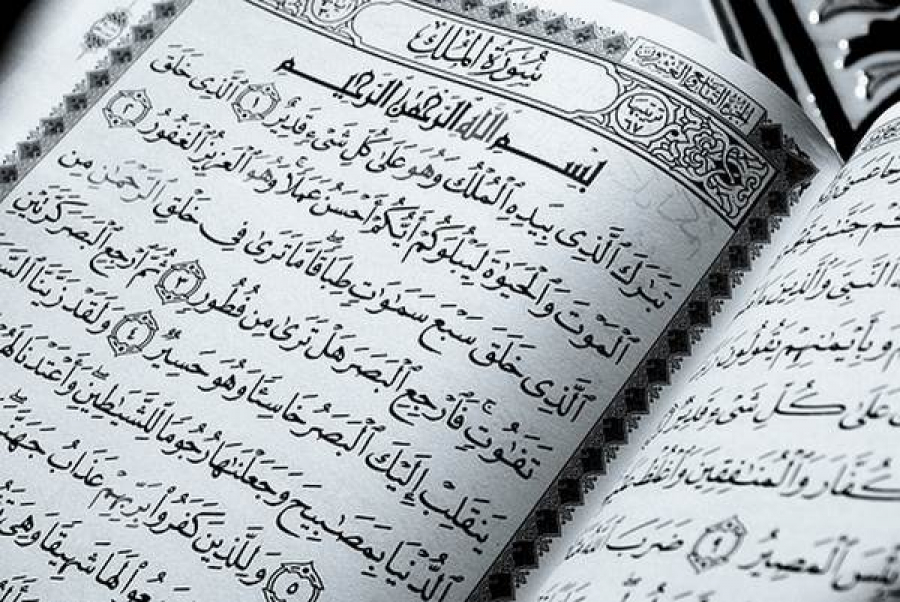 الجزء التاسع والعشرون
سُورَةُ الْمُلْكِ
٦٧
بِسْمِ ٱللَّهِ ٱلرَّحْمَٰنِ ٱلرَّحِيمِ
تَبَٰرَكَ ٱلَّذِى بِيَدِهِ ٱلْمُلْكُ وَهُوَ عَلَىٰ كُلِّ شَىْءٍ قَدِيرٌ ١ ٱلَّذِى خَلَقَ
ٱلْمَوْتَ وَٱلْحَيَوٰةَ لِيَبْلُوَكُمْ أَيُّكُمْ أَحْسَنُ عَمَلًا ۚ وَهُوَ ٱلْعَزِيزُ ٱلْغَفُورُ ٢
ٱلَّذِى خَلَقَ سَبْعَ سَمَٰوَٰتٍ طِبَاقًا ۖ مَّا تَرَىٰ فِى خَلْقِ ٱلرَّحْمَٰنِ مِن
تَفَٰوُتٍ ۖ فَٱرْجِعِ ٱلْبَصَرَ هَلْ تَرَىٰ مِن فُطُورٍ ٣ ثُمَّ ٱرْجِعِ ٱلْبَصَرَ كَرَّتَيْنِ
يَنقَلِبْ إِلَيْكَ ٱلْبَصَرُ خَاسِئًا وَهُوَ حَسِيرٌ ٤ وَلَقَدْ زَيَّنَّا
ٱلدُّنْيَا بِمَصَٰبِيحَ وَجَعَلْنَٰهَا رُجُومًا لِّلشَّيَٰطِينِ ۖ وَأَعْتَدْنَا لَهُمْ
٥ وَلِلَّذِينَ كَفَرُوا۟ بِرَبِّهِمْ عَذَابُ
لَهَا شَهِيقًا وَهِىَ
ٱلنَّبِىَّ وَٱلَّذِينَ
وَبِأَيْمَٰنِهِمْ يَقُولُونَ
عَلَىٰ كُلِّ شَىْءٍ قَدِيرٌ
وَٱلْمُنَٰفِقِينَ وَٱغْلُظْ
ٱلْمَصِيرُ ٩ ضَرَبَ